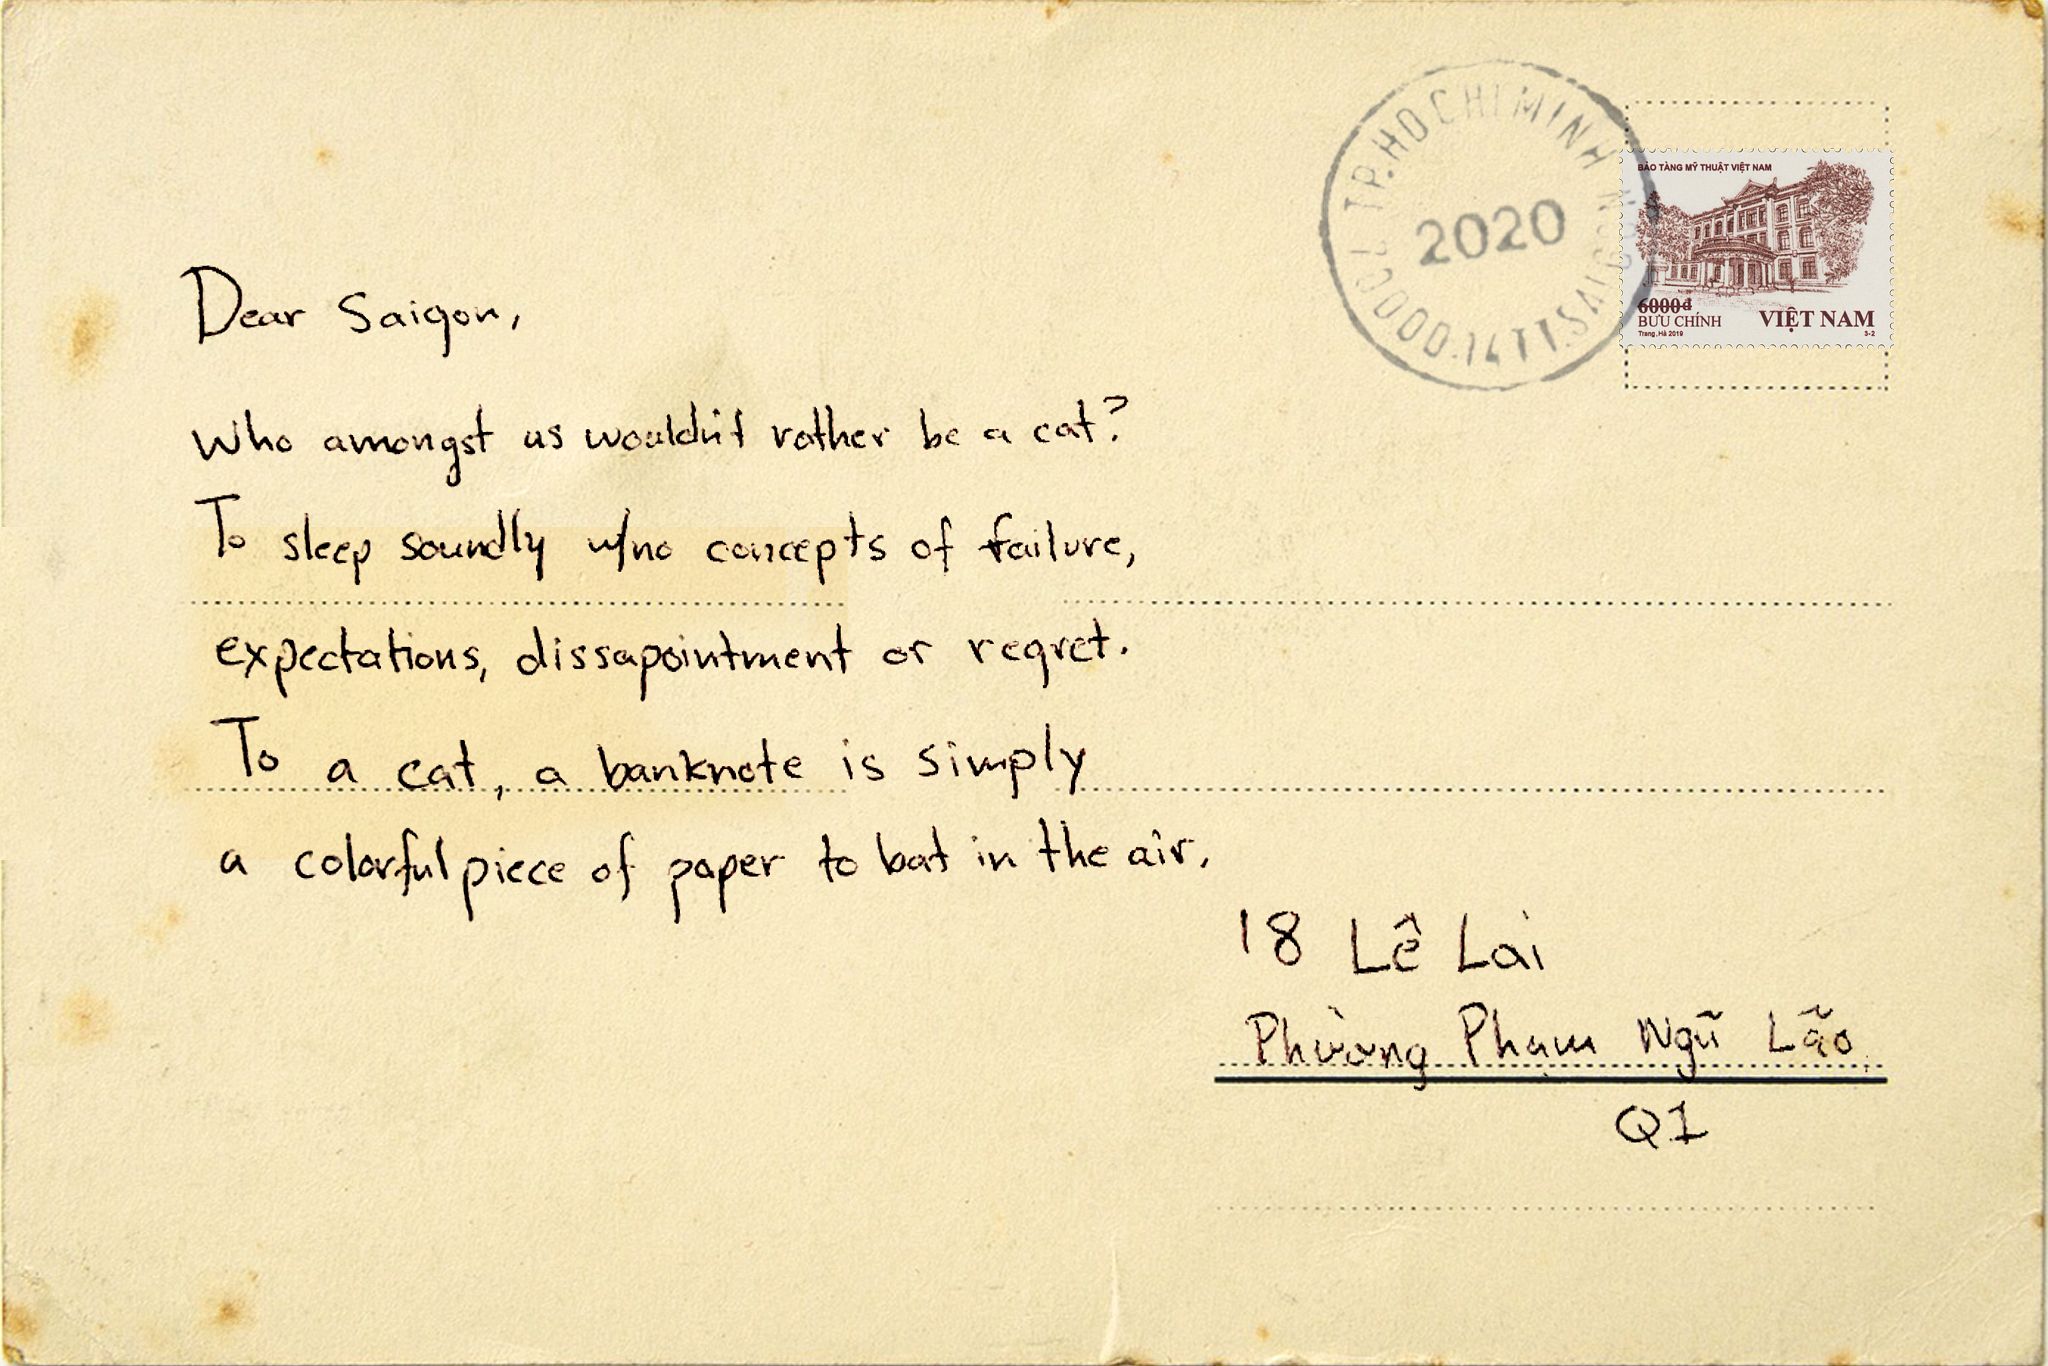 Dear Saigon,
Who amongst us wouldn't rather be a cat?
To sleep soundly w/no concepts of failure,
expectations, dissapointment or regret.
To a cat, a banknote is simply
a colorful piece of paper to bat in the air.
18 Lê Lai
Phường Phạm Ngũ Lão
Q1
TP.HO CHI MINH
2020
BẢO TÀNG MỸ THUẬT VIỆT NAM
6000đ
BƯU CHÍNH
VIỆT NAM
Trang, Hà 2019
3-2